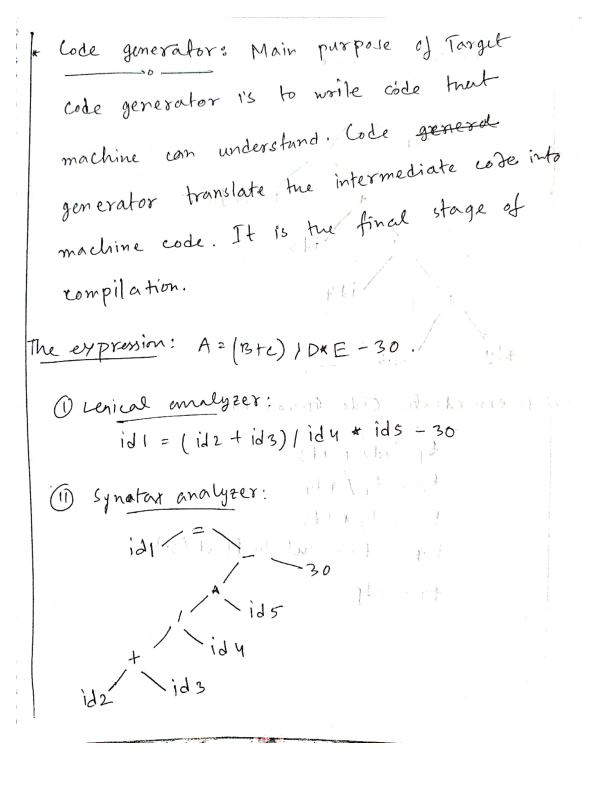 * Code generator: Main purpose of Target
code generator is to write code that
machine can understand. Code generat
generator translate the intermediate code into
machine code. It is the final stage of
compilation.
The expression: A = (B+c) / D* E - 30.
① Lexical analyzer:
id1 = (id2 + id3) / id4 * id5 - 30
⑪ Synatax analyzer:
=
id1 -
30
*
id5
/
id4
+
id2 id3